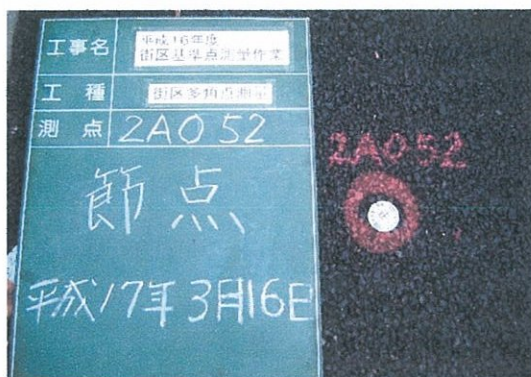 工事名
平成16年度
街区基準点測量作業
工種
街区多角点測量
測点 2A052
節点
平成17年3月16日
2A052